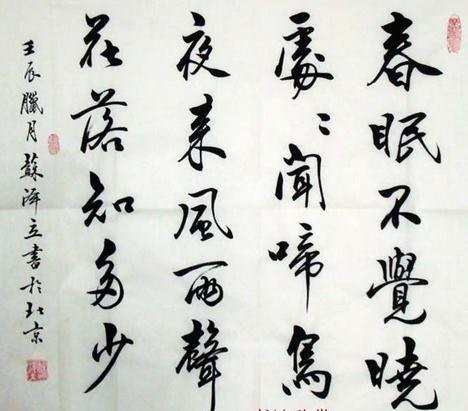 春眠不覺曉
處〻聞啼鳥
夜来風雨聲
花落知多少
壬辰臘月蘇泽立書於北京